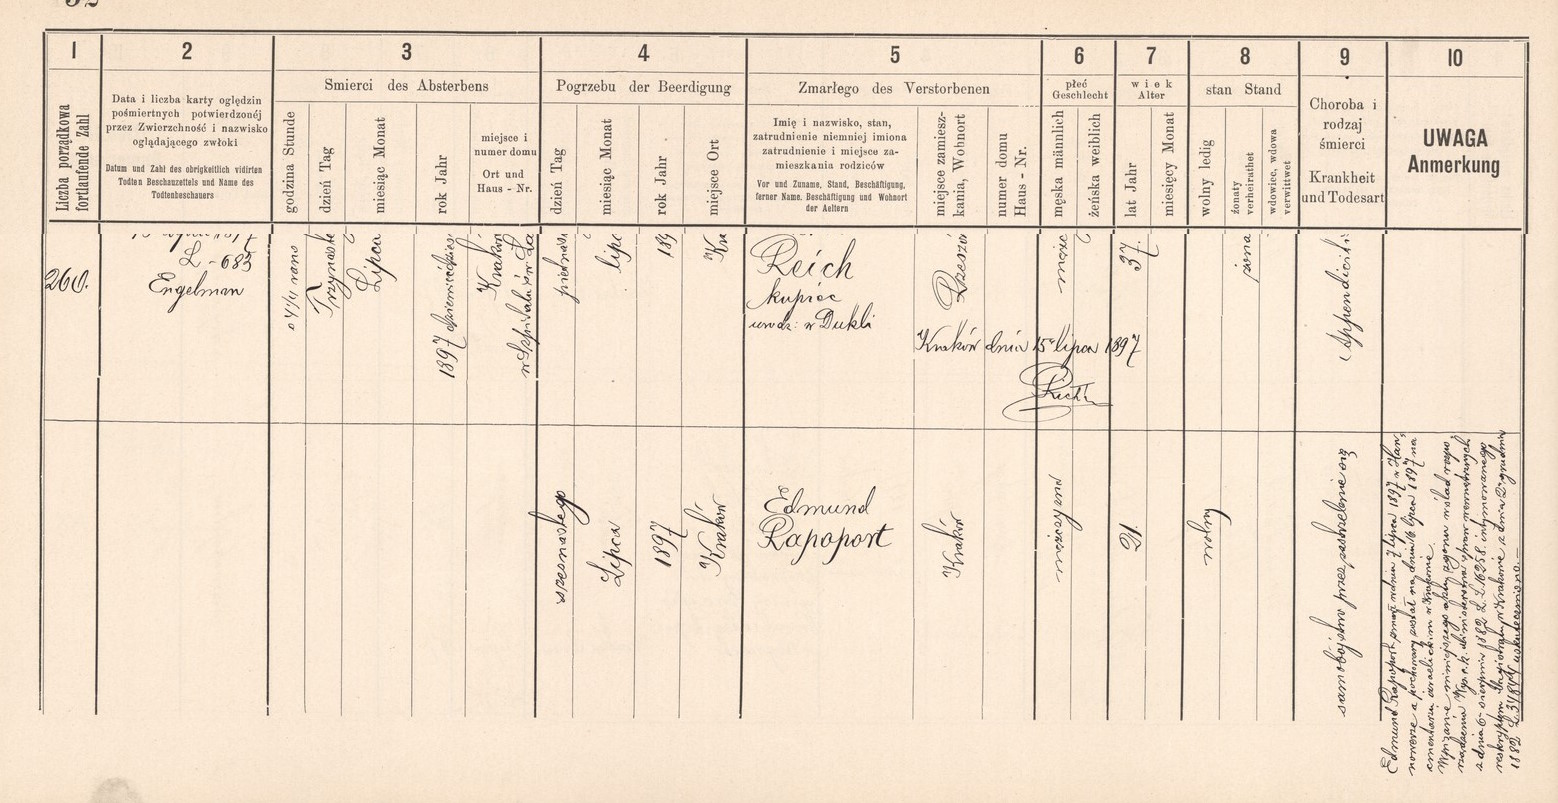 1
2
3
4
5
6
7
8
9
10
Liczba porządkowa
fortlaufende Zahl
Data i liczba karty oględzin
pośmiertnych potwierdzonéj
przez Zwierzchność i nazwisko
oglądającego zwłoki
Datum und Zahl des obrigkeitlich vidirten
Todten Beschauzettels und Name des
Todtenbeschauers
Smierci des Absterbens
godzina Stunde
dzień Tag
miesiąc Monat
rok Jahr
miejsce i
numer domu
Ort und
Haus - Nr.
Pogrzebu der Beerdigung
dzień Tag
miesiąc Monat
rok Jahr
miejsce Ort
Zmarłego des Verstorbenen
Imię i nazwisko, stan,
zatrudnienie niemniej imiona
zatrudnienie i miejsce za-
mieszkania rodziców
Vor und Zuname, Stand, Beschäftigung,
ferner Name, Beschäftigung und Wohnort
der Aeltern
miejsce zamiesz-
kania, Wohnort
numer domu
Haus - Nr.
płeć
Geschlecht
męska männlich
żeńska weiblich
wiek
Alter
lat Jahr
miesięcy Monat
stan Stand
wolny ledig
żonaty
verheirathet
wdowiec, wdowa
verwittwet
Choroba i
rodzaj
śmierci
Krankheit
und Todesart
UWAGA
Anmerkung
260.
L - 685
Engelman
rano
Lipca
1897
Kraków
w Szpitalu
lipc
189
Reich
kupiec
urodz: w Dukli
Rzeszó
37.
żona
Appendicitis
Kraków dnia 15 lipca 1897
szesnastego
Lipca
1897
Kraków
Edmund
Rapoport
Kraków
mężczyzna
21.
wolny
samobójstwo przez zastrzelenie się
Edmund Rapoport zmarł dnia 7 lipca 1897 w Han
nowerze a pochowany został na dniu 16 lipca 1897 na
cmentarzu izraelickim w Krakowie.
Wpisanie niniejszego aktu zgonu w skład rozpo
rządzenia Wys. c.k. Ministerstwa spraw wewnętrznych
z dnia 6 sierpnia 1882 L. 16258 intymowanego
reskryptem Magistratu w Krakowie z dnia 2 grudnia
1882 L. uskuteczniono.